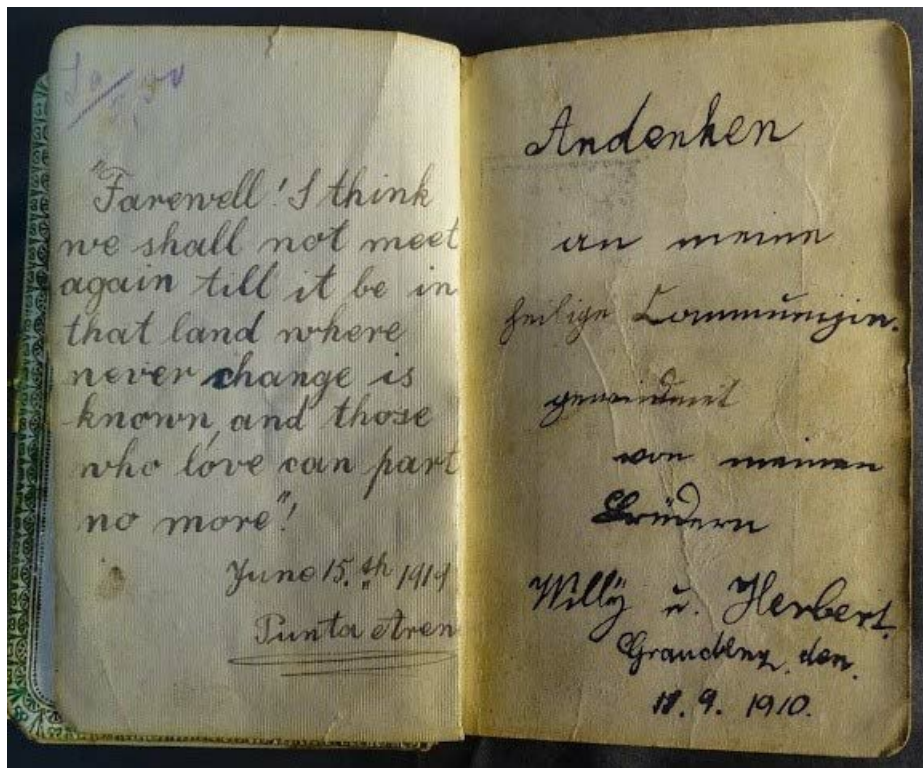 "Farewell! I think
we shall not meet
again till it be in
that land where
never change is
known, and those
who love can part
no more"!
June 15.th 1919
Punta Aren
Andenken
an meine
heilige Communion.
gewidmet
von meinen
Brüdern
Willÿ u. Herbert.
Graudenz, den.
18. 9. 1910.